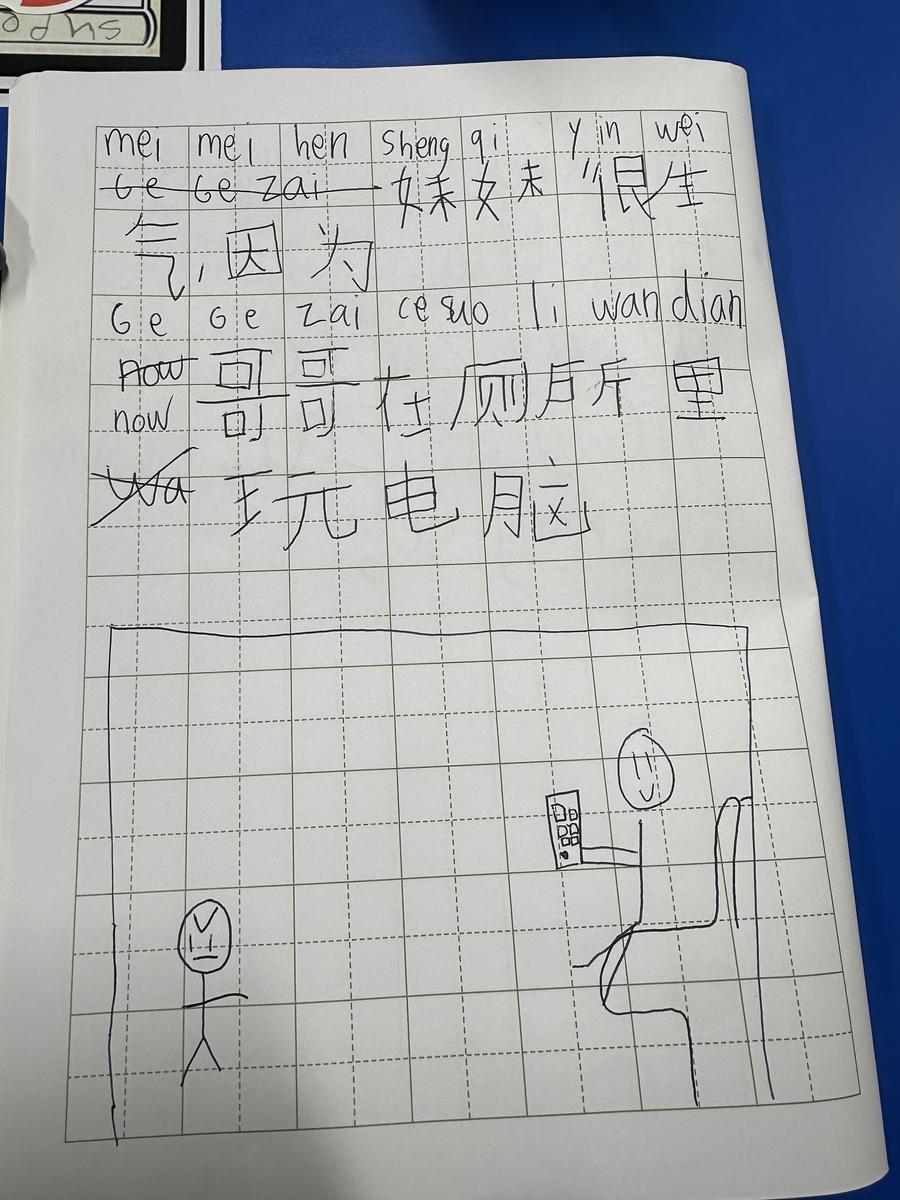 mei mei hen sheng qi yin wei
Ge Ge zai 妹妹很生
气,因为
Ge Ge zai ce suo li wan dian
now
now 哥哥在厕所里
wa 玩电脑